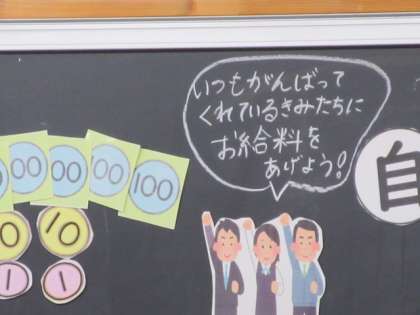 いつもがんばって
くれているきみたちに
お給料を
あげよう!
自
00
00
100
100
0
10
1
1